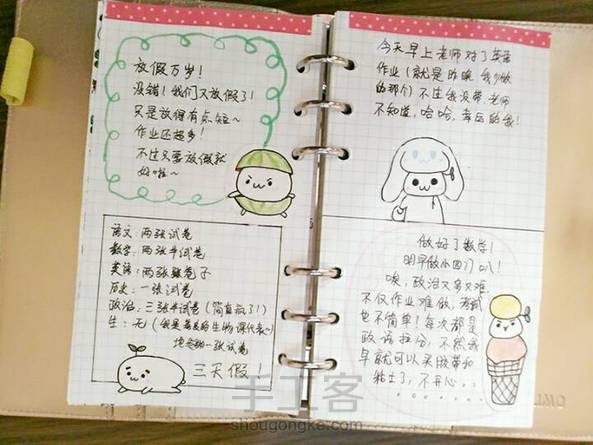 放假万岁！
没错！我们又放假了！
只是放得有点短～
作业还超多！
不过只要放假就
好啦～
语文：两张试卷
数学：两张半试卷
英语：两张报卷子
历史：一张试卷
政治：三张半试卷（简直疯了！）
生：无（我是最美的生物课代表～）
地也物一张试卷
三天假！
今天早上老师对了英语
作业（就是昨晚我少做
的那个）不过我没带，老师
不知道，哈哈，幸运的我！
做好了数学！
明早做小四门叭！
唉，政治又多又难，
不仅作业难做，考试
也不简单！每次都是
政治拉分，不然我
早就可以买胶带和
粘土了，不开心..
手工客
shougongke.com